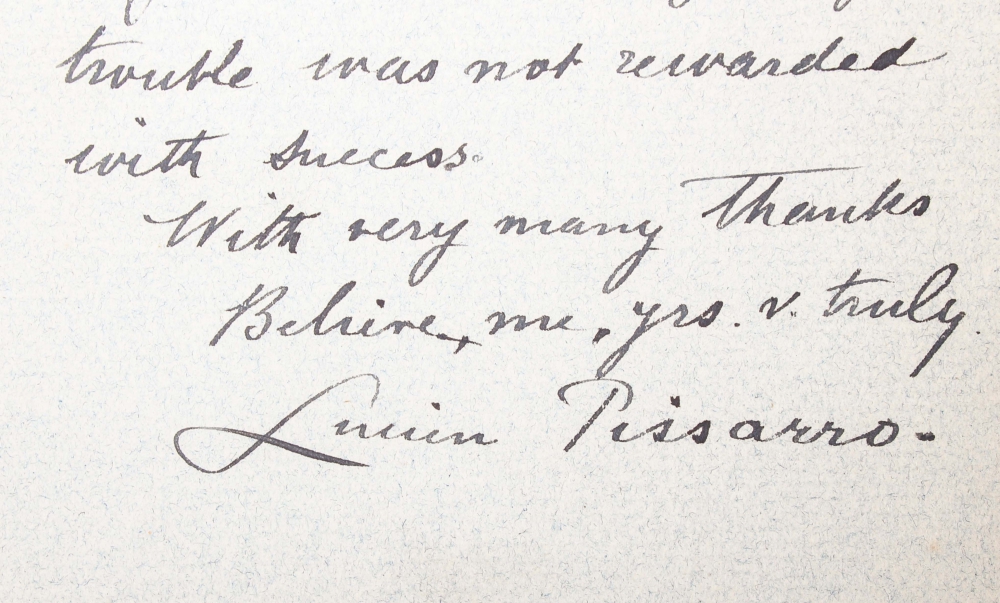 trouble was not rewarded
with success.
With very many thanks
Believe, me, yrs. v. truly.
Lucien Pissarro-